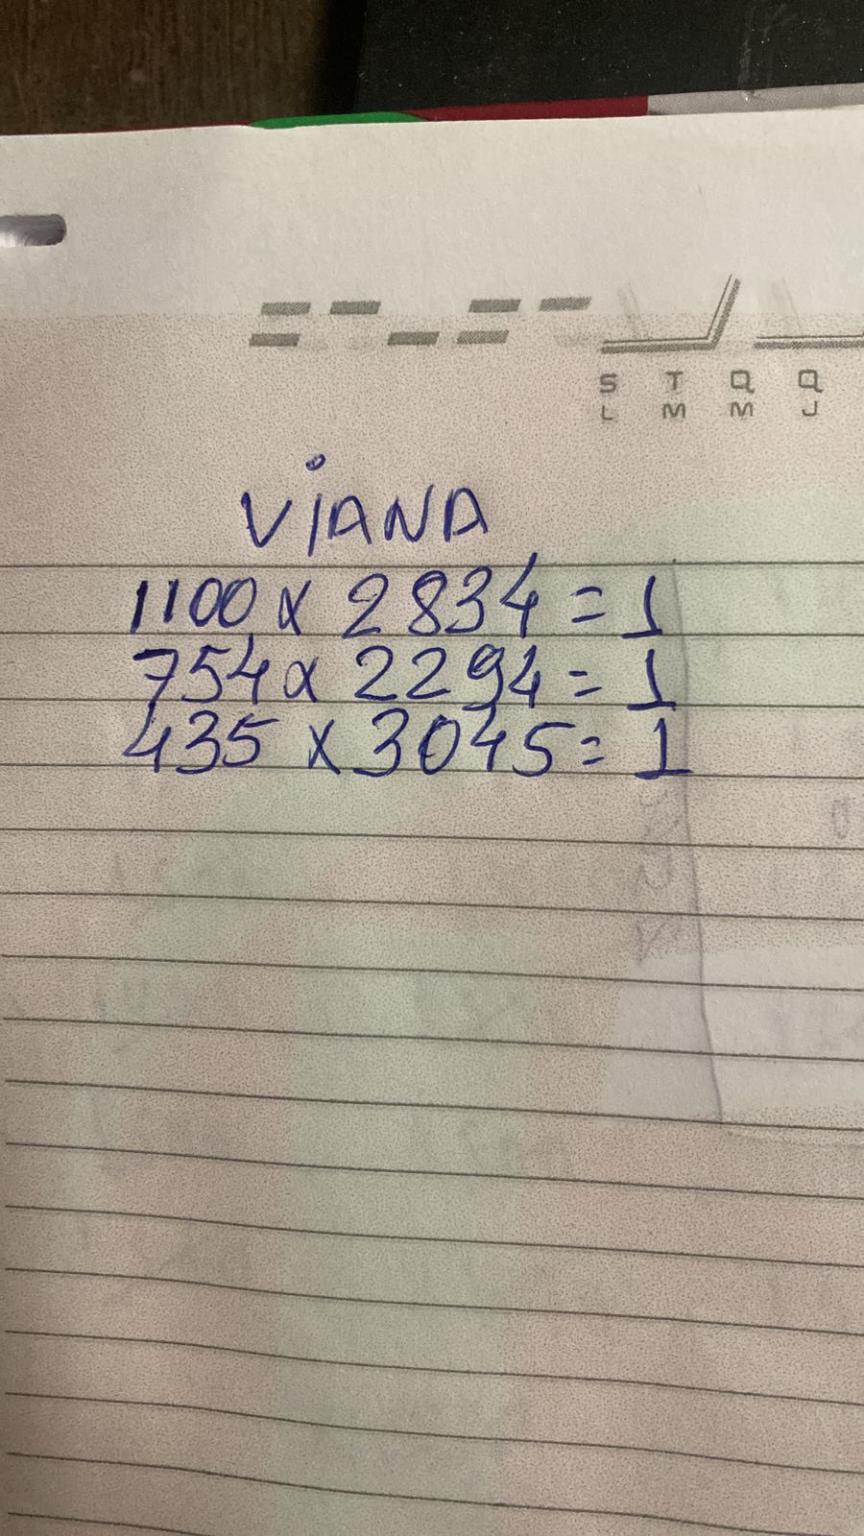 S T Q Q
L M M J
VIANA
1100 x 2834 = 1
754 x 2294 = 1
435 x 3045 = 1